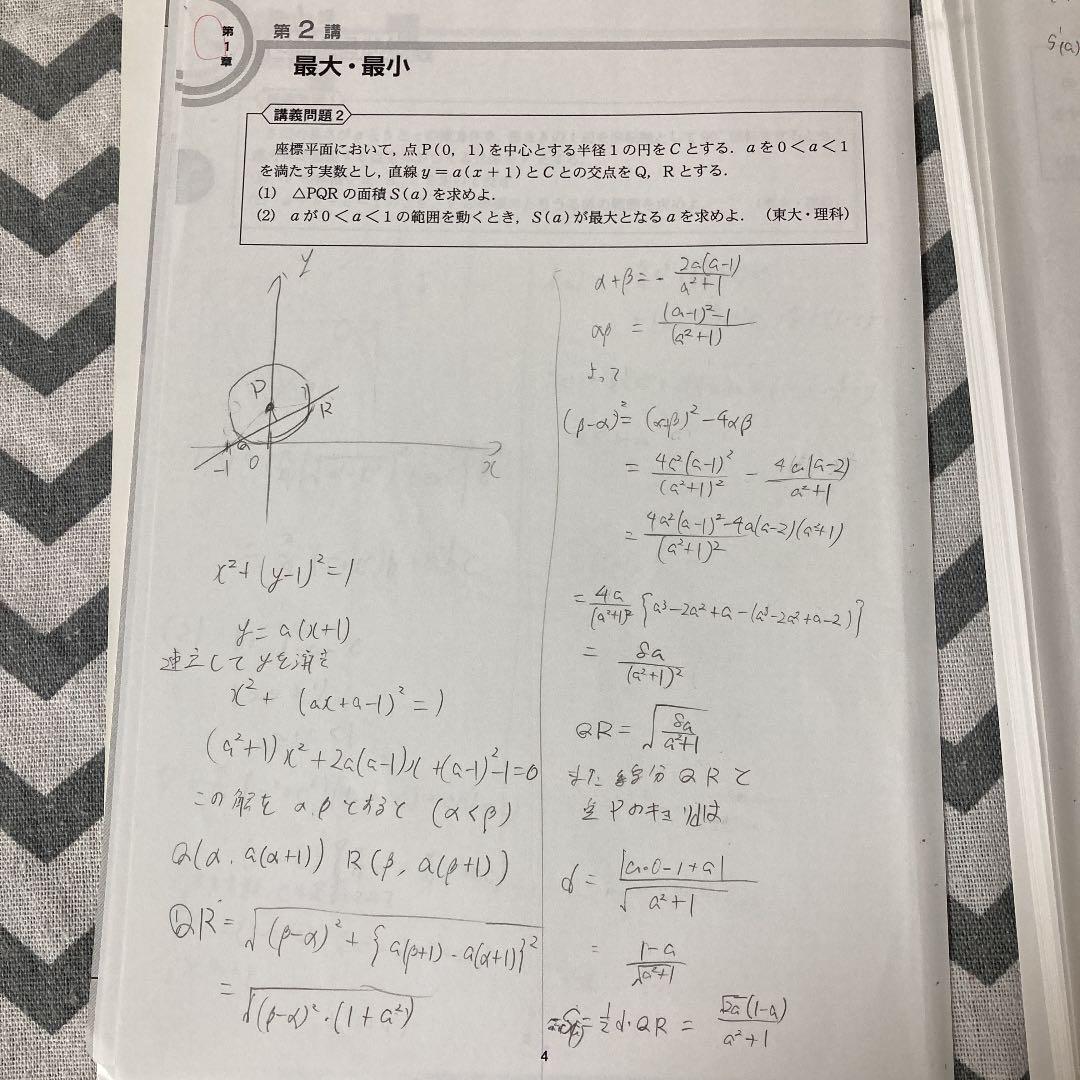 第1章
第2講
最大・最小
講義問題2
座標平面において,点P(0, 1)を中心とする半径1の円をCとする.aを0<a<1
を満たす実数とし,直線y=a(x+1)とCとの交点をQ, Rとする.
(1) △PQRの面積S(a)を求めよ.
(2) aが0<a<1の範囲を動くとき,S(a)が最大となるaを求めよ. (東大・理科)
y
P
R
Q
-1
0
x
x²+(y-1)²=1
y=a(x+1)
連立してyを消去
x²+(ax+a-1)²=1
(a²+1)x²+2a(a-1)x+(a-1)²-1=0
この解をα,βとすると (α<β)
Q(α, a(α+1)) R(β, a(β+1))
QR=√((β-α)²+{a(β+1)-a(α+1)}²)
=√((β-α)²・(1+a²))
α+β=-2a(a-1)/(a²+1)
αβ=((a-1)²-1)/(a²+1)
よって
(β-α)²=(α+β)²-4αβ
=4a²(a-1)²/(a²+1)² - 4a(a-2)/(a²+1)
=(4a²(a-1)²-4a(a-2)(a²+1))/(a²+1)²
=4a/(a²+1)² {a³-2a²+a-(a³-2a²+a-2)}
=8a/(a²+1)²
QR=√(8a/(a²+1))
また 線分QRと
点Pのキョリdは
d=|a・0-1+a|/√(a²+1)
=(1-a)/√(a²+1)
=½d・QR=√2a(1-a)/(a²+1)
4
S'(a)